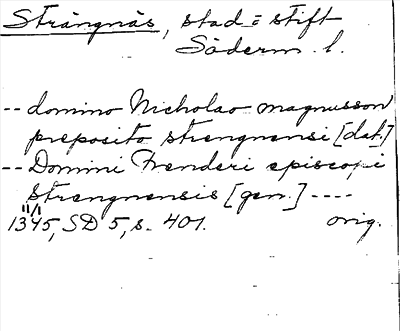 Strängnäs, stad o stift
Söderm. l.
-- domino Nicholao magnusson
preposito strengnensi [dat.]
-- Domini Frenderi episcopi
strengnensis [gen.] ----
1345, SD 5, s. 401. orig.